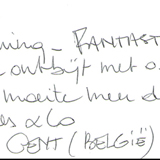 ning - FANTAST
ontbijt met o
moeite meer d
es & Co
GENT (BELGIË)